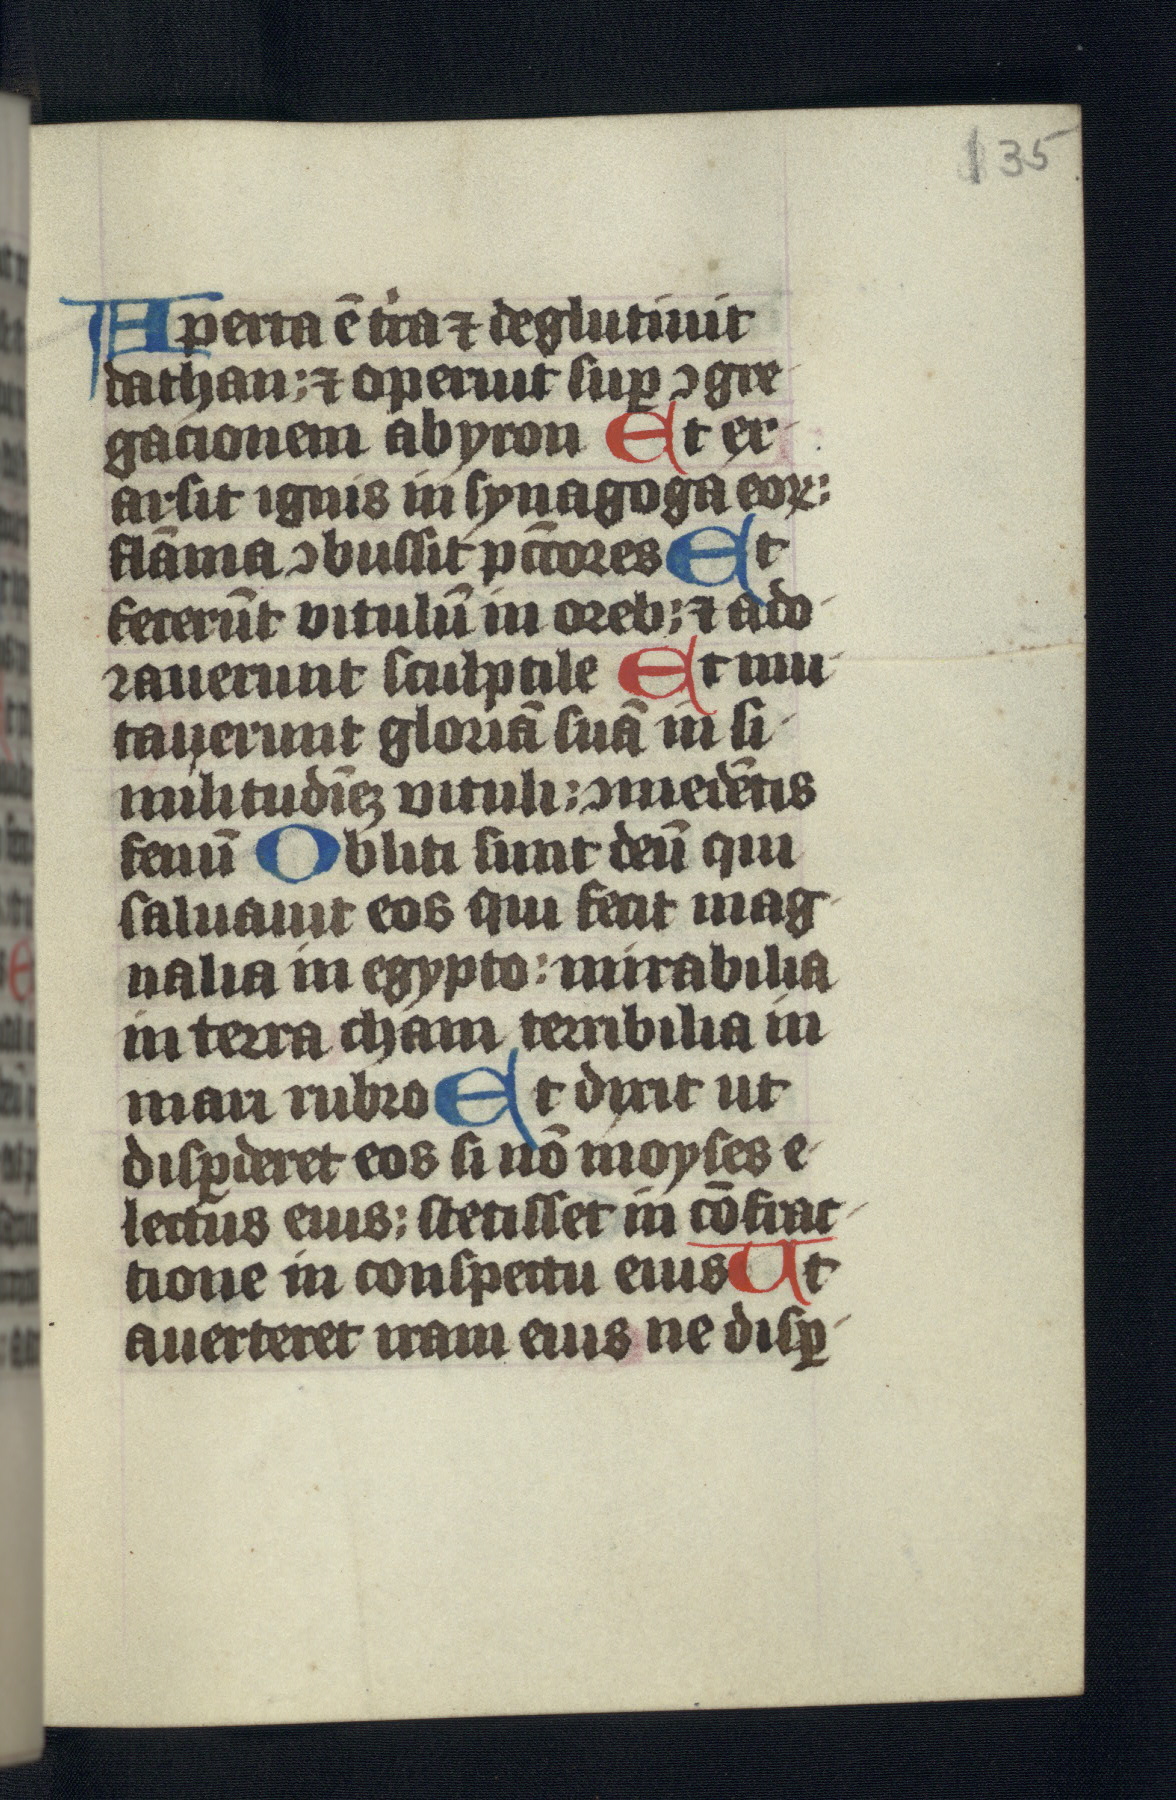 135
Aperta ē tͥra ⁊ deglutiuit
dathan; ⁊ operuit suꝑ ɔgre
gacionem abyron Et ex
arsit ignis in synagoga eoꝝ:
flāma ɔbussit pc̄tores Et
fecerūt vitulū in oreb; ⁊ ado
rauerunt sculptile Et mu
tauerunt gloriā suā in si
militudīeꝫ vituli; ɔmedētis
fenū Obliti sunt deū qui
saluauit eos qui fecit mag
nalia in egypto: mirabilia
in terra cham terribilia in
mari rubro Et dixit ut
disꝑderet eos si nō moyses e
lectus eius; stetisset in cōfrac
tione in conspectu eius Ut
auerteret iram eius ne disꝑ